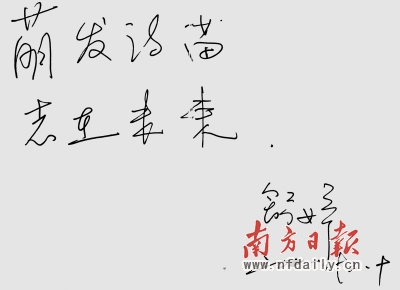 萌发诗苗
志在未来.
舒婷
南方日报
www.nfdaily.cn